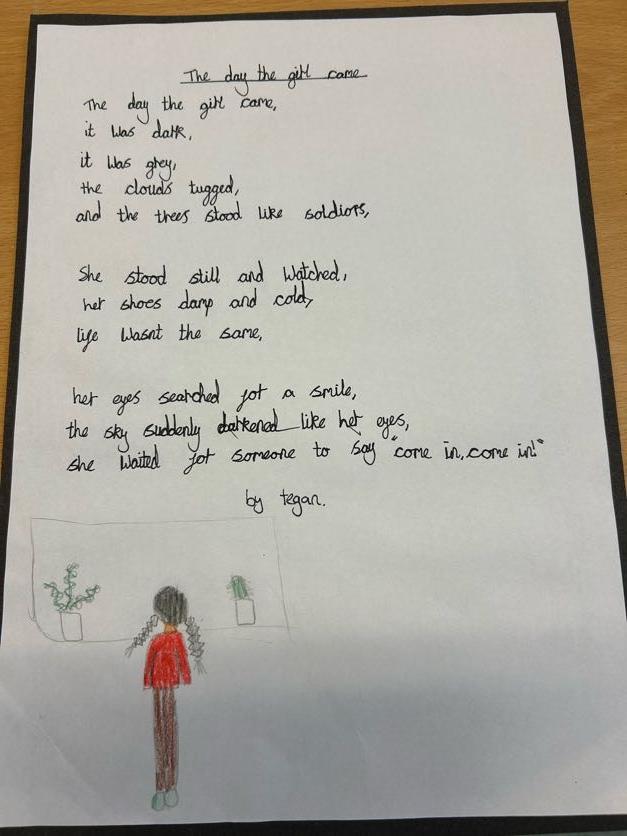 The day the girl came
The day the girl came,
it was dark,
it was grey,
the clouds tugged,
and the trees stood like soldiors,
She stood still and watched,
her shoes damp and cold,
life wasnt the same,
her eyes searched for a smile,
the sky suddenly darkened like her eyes,
she waited for someone to say "come in, come in!"
by tegan.